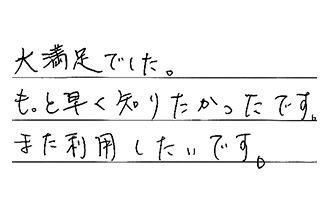 大満足でした。
もっと早く知りたかったです。
また利用したいです。